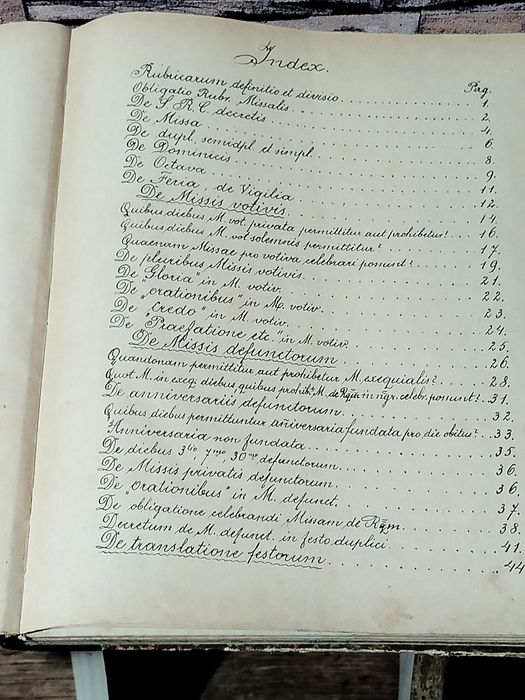 Index.
Pag.
Rubricarum definitio et divisio . . . . . . . . . . 1.
Obligatio Rubr. Missalis . . . . . . . . . . 2.
De S. R. C. decretis . . . . . . . . . . 4.
De Missa . . . . . . . . . . 6.
De dupl. semidpl. et simpl. . . . . . . . . . . 8.
De Dominicis . . . . . . . . . . 9.
De Octava . . . . . . . . . . 11.
De Feria, de Vigilia . . . . . . . . . . 12.
De Missis votivis . . . . . . . . . . 14.
Quibus diebus M. vot. privata permittitur aut prohibetur? . . 16.
Quibus diebus M. vot solemnis permittitur? . . . . . . 17.
Quaenam Missae pro votiva celebrari possunt? . . . . 19.
De pluribus Missis votivis. . . . . . . . . . . 21.
De "Gloria" in M. votiv. . . . . . . . . . . 22.
De "orationibus" in M. votiv. . . . . . . . . . . 23.
De "Credo" in M. votiv. . . . . . . . . . . 24.
De "Praefatione etc." in M. votiv. . . . . . . . . . 25.
De Missis defunctorum . . . . . . . . . . 26.
Quandonam permittitur aut prohibetur M. exequialis? . . . 28.
Quot M. in exeq. diebus, quibus prohib. M. de Rqm in ngr. celebr. possunt? . 31.
De anniversariis defunctorum. . . . . . . . . . 32.
Quibus diebus permittuntur anniversaria fundata pro die obitus? . . 33.
Anniversaria non fundata . . . . . . . . . . 35.
De diebus 3tio 7mo, 30mo defunctorum. . . . . . . . . 36.
De Missis privatis defunctorum. . . . . . . . . 36.
De "orationibus" in M. defunct. . . . . . . . . . 37.
De obligatione celebrandi Missam de Rqm. . . . . . . 38.
Decretum de M. defunct. in festo duplici. . . . . . . 41.
De translatione festorum. . . . . . . . . . 44